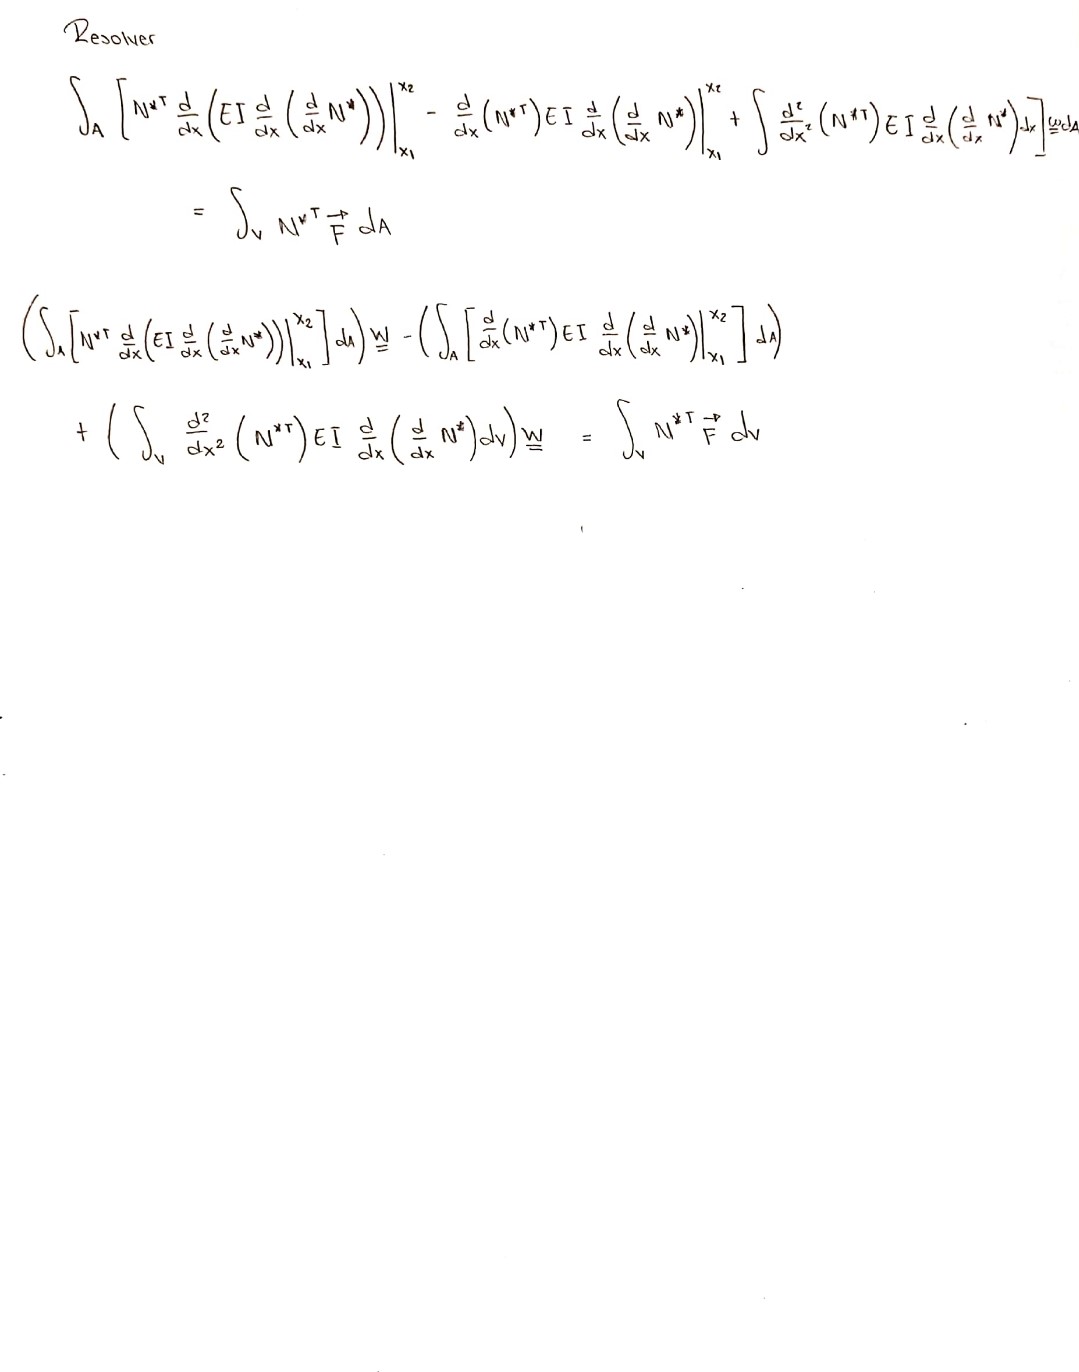 Resolver
∫_A [N*ᵀ d/dx (EI d/dx (d/dx N*))|_{x1}^{x2} - d/dx (N*ᵀ) EI d/dx (d/dx N*)|_{x1}^{x2} + ∫ d²/dx² (N*ᵀ) EI d/dx (d/dx N*) dx] w dA
= ∫_V N*ᵀ F⃗ dA
(∫_A [N*ᵀ d/dx (EI d/dx (d/dx N*))|_{x1}^{x2}] dA) w - (∫_A [d/dx (N*ᵀ) EI d/dx (d/dx N*)|_{x1}^{x2}] dA)
+ (∫_V d²/dx² (N*ᵀ) EI d/dx (d/dx N*) dv) w = ∫_V N*ᵀ F⃗ dv